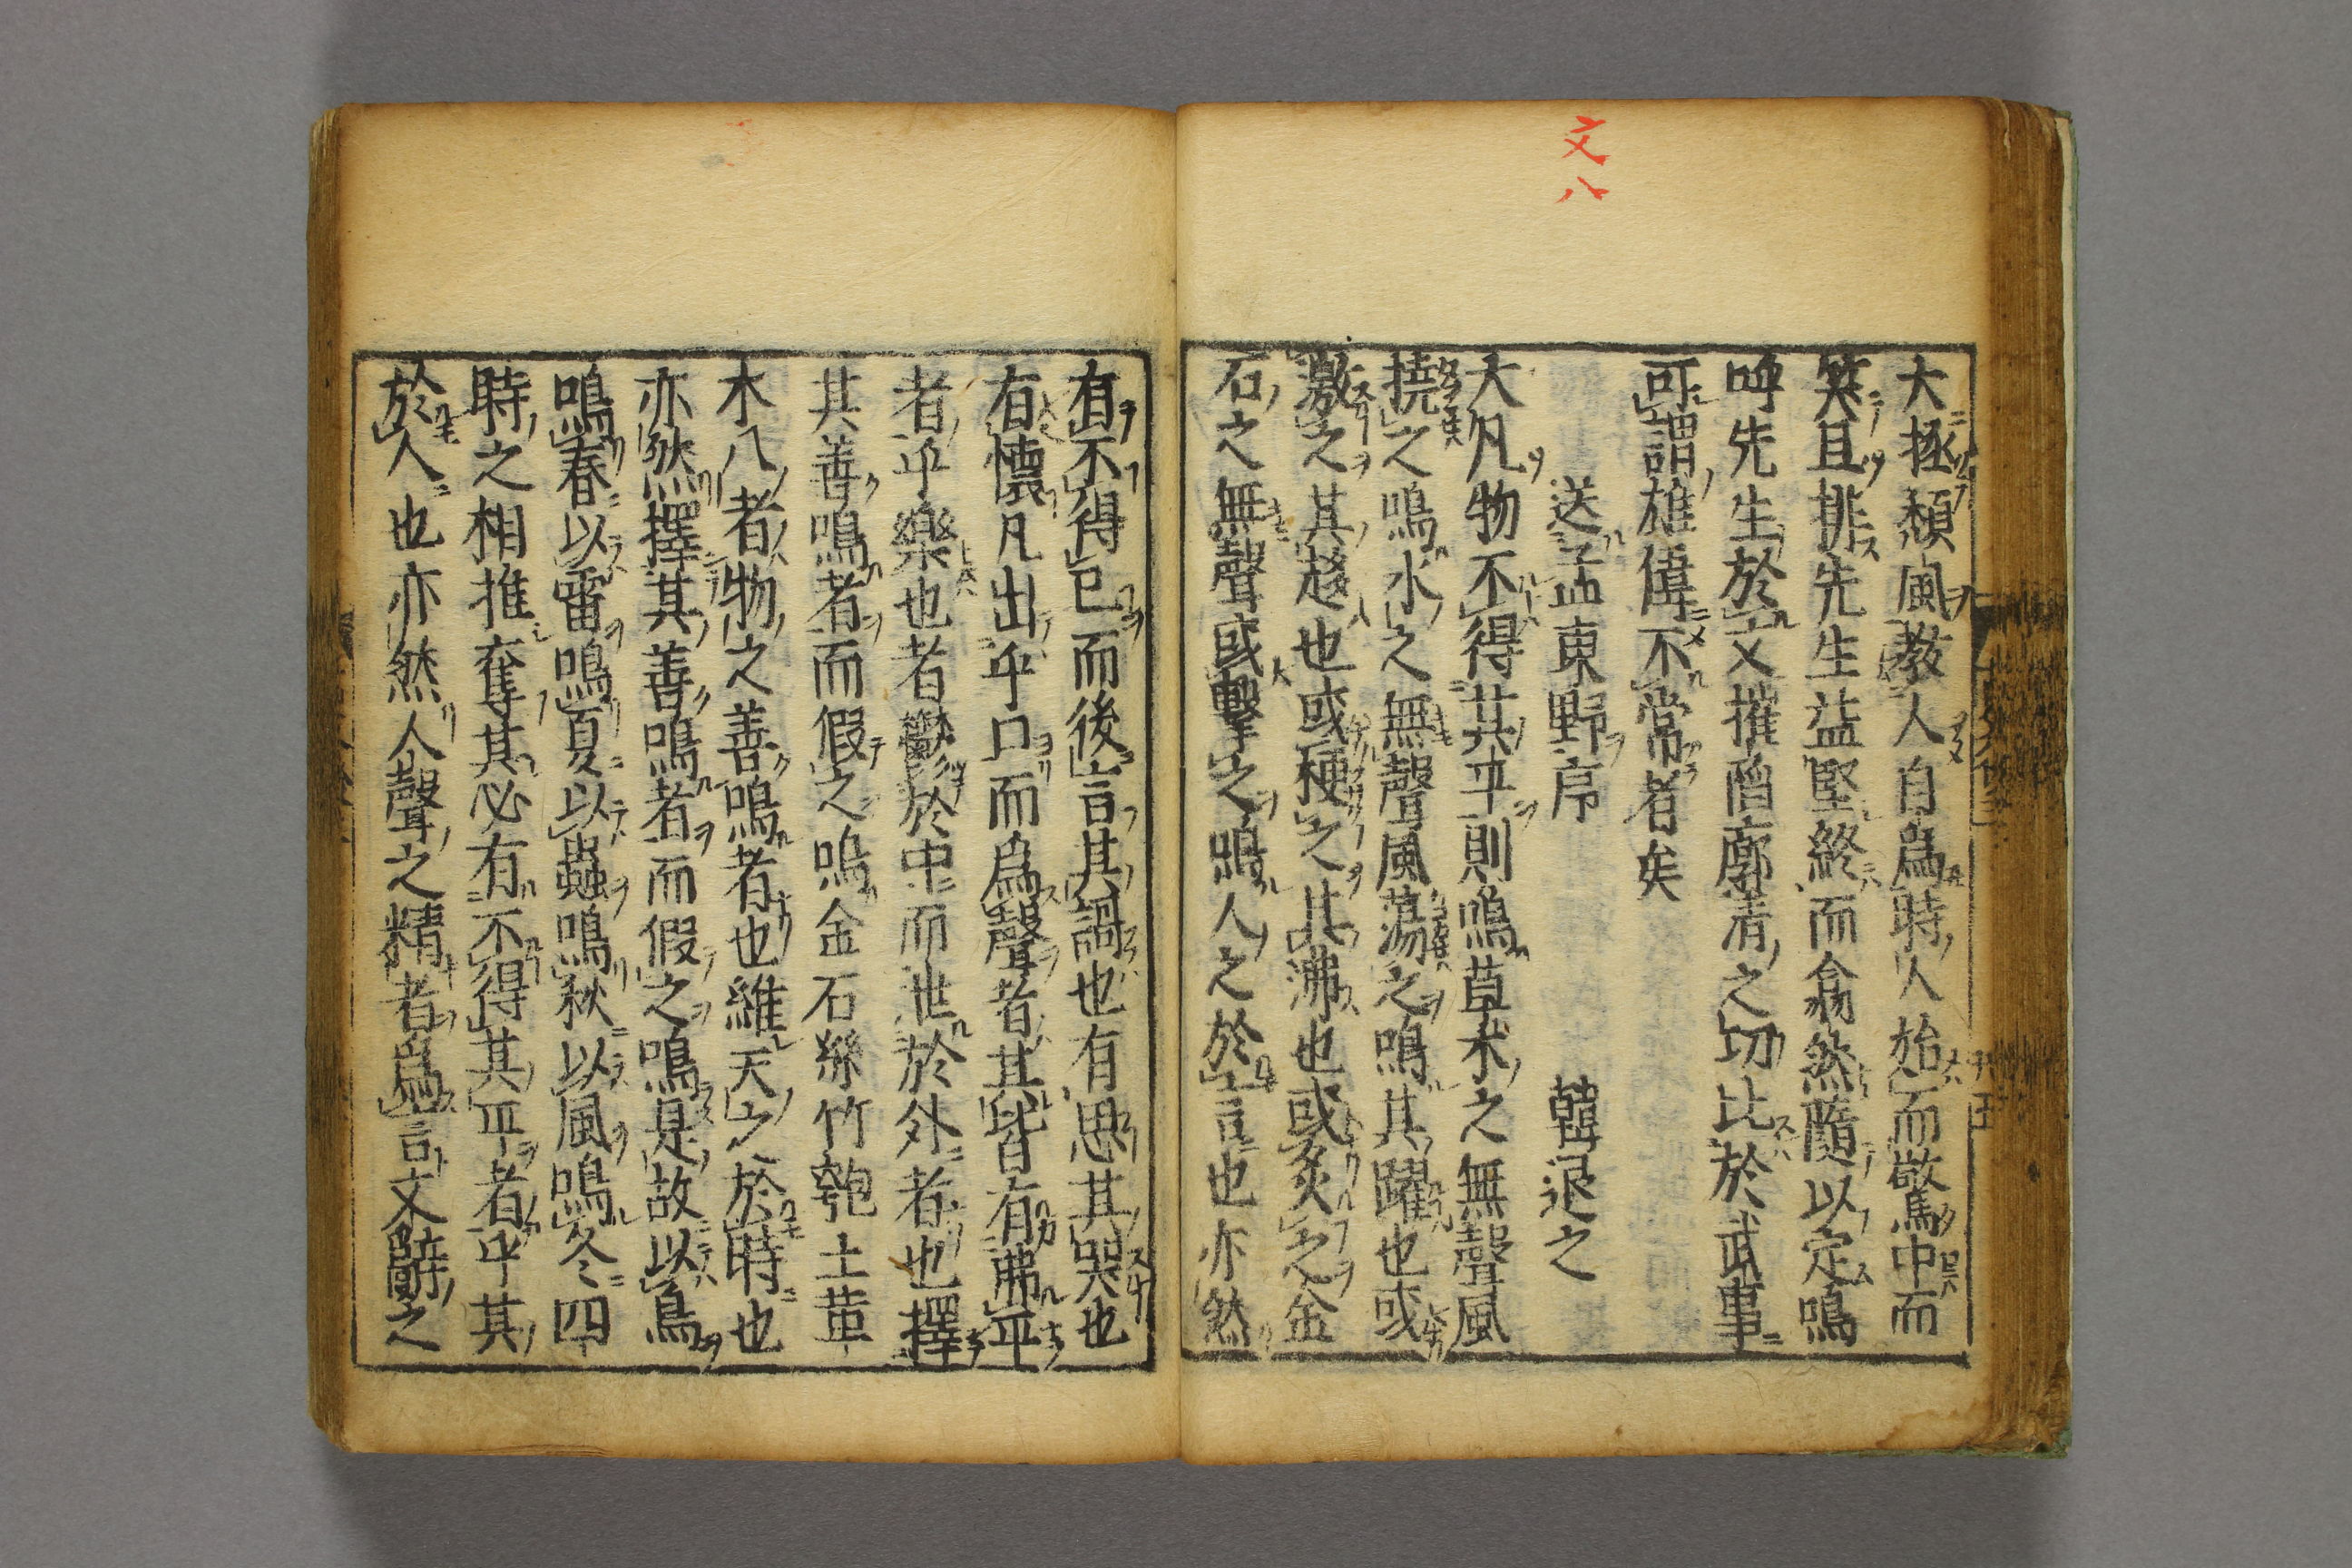 文八
大拯頽風教人自爲時人始而驚中而
笑且排先生益堅終而翕然隨以定嗚
呼先生於文摧陷廓清之功比於武事
可謂雄偉不常者矣
送孟東野序 韓退之
大凡物不得其平則鳴草木之無聲風
撓之鳴水之無聲風蕩之鳴其躍也或
激之其趍也或梗之其沸也或炙之金
石之無聲或擊之鳴人之於言也亦然
有不得已而後言其謌也有思其哭也
有懷凡出乎口而爲聲者其皆有弗平
者乎樂也者鬱於中而泄於外者也擇
其善鳴者而假之鳴金石絲竹匏土革
木八者物之善鳴者也維天之於時也
亦然擇其善鳴者而假之鳴是故以鳥
鳴春以雷鳴夏以蟲鳴秋以風鳴冬四
時之相推奪其必有不得其平者乎其
於人也亦然人聲之精者爲言文辭之